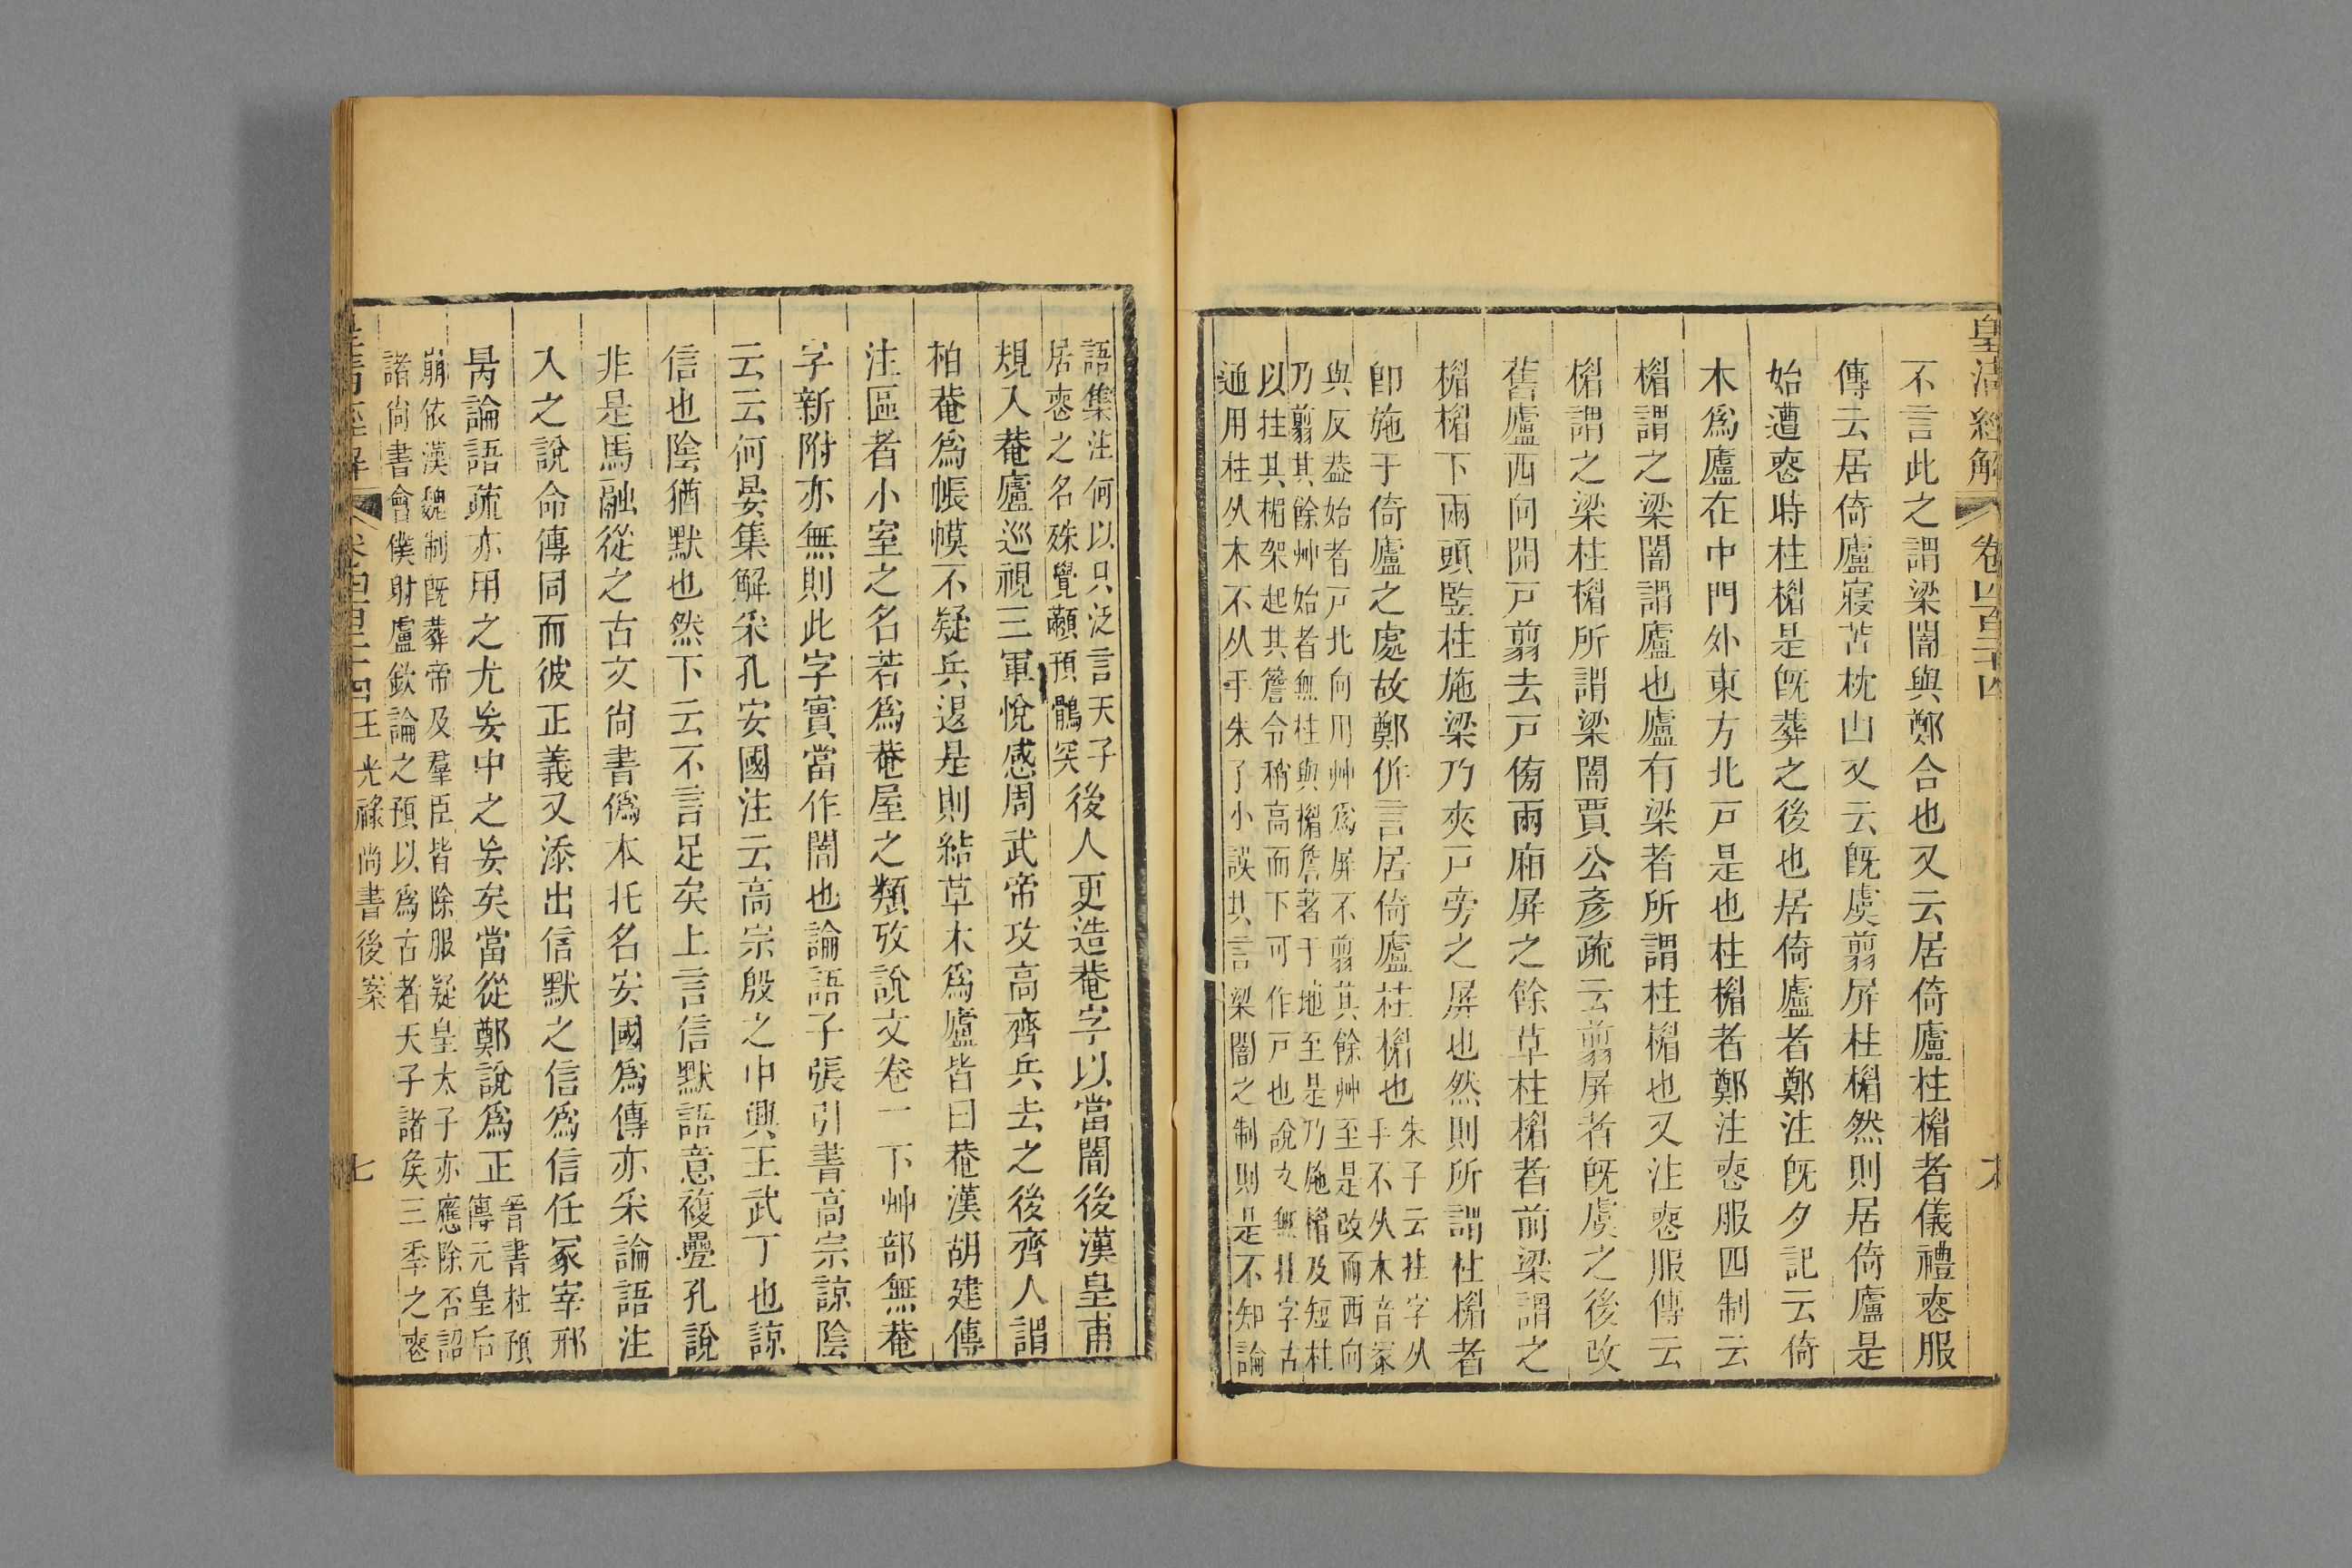 皇清經解
卷四百三十四
不言此之謂梁闇與鄭合也又云居倚廬柱楣者儀禮喪服
傳云居倚廬寢苫枕凷又云旣虞翦屏柱楣然則居倚廬是
始遭喪時柱楣是旣葬之後也居倚廬者鄭注旣夕記云倚
木爲廬在中門外東方北戸是也柱楣者鄭注喪服四制云
楣謂之梁闇謂廬也廬有梁者所謂柱楣也又注喪服傳云
楣謂之梁柱楣所謂梁闇賈公彥疏云翦屏者旣虞之後改
舊廬西向開戸翦去戸傍兩廂屏之餘草柱楣者前梁謂之
楣楣下兩頭竪柱施梁乃夾戸旁之屏也然則所謂柱楣者
卽施于倚廬之處故鄭倂言居倚廬柱楣也
朱子云拄字从
手不从木音冢
與反葢始者戸北向用艸爲屏不翦其餘艸至是改而西向
乃翦其餘艸始者無柱與楣詹著于地至是乃施楣及短柱
以拄其楣架起其簷令稍高而下可作戸也說文無拄字古
通用柱从木不从手朱子小誤其言梁闇之制則是不知論
語集注何以只泛言天子
居喪之名殊覺顢頇鶻突
後人更造菴字以當闇後漢皇甫
規入菴廬巡視三軍悅感周武帝攻高齊兵去之後齊人謂
柏菴爲帳幙不疑兵退是則結草木爲廬皆曰菴漢胡建傳
注區者小室之名若爲菴屋之類攷說文卷一下艸部無菴
字新附亦無則此字實當作闇也論語子張引書高宗諒陰
云云何晏集解采孔安國注云高宗殷之中興王武丁也諒
信也陰猶默也然下云不言足矣上言信默語意複疊孔說
非是馬融從之古文尙書僞本托名安國爲傳亦采論語注
入之說命傳同而彼正義又添出信默之信爲信任冢宰邢
昺論語疏亦用之尤妄中之妄矣當從鄭說爲正
晉書杜預
傳元皇后
崩依漢魏制旣葬帝及羣臣皆除服疑皇太子亦應除否詔
諸尙書會僕射盧欽論之預以爲古者天子諸矦三年之喪
王光祿尙書後案
七